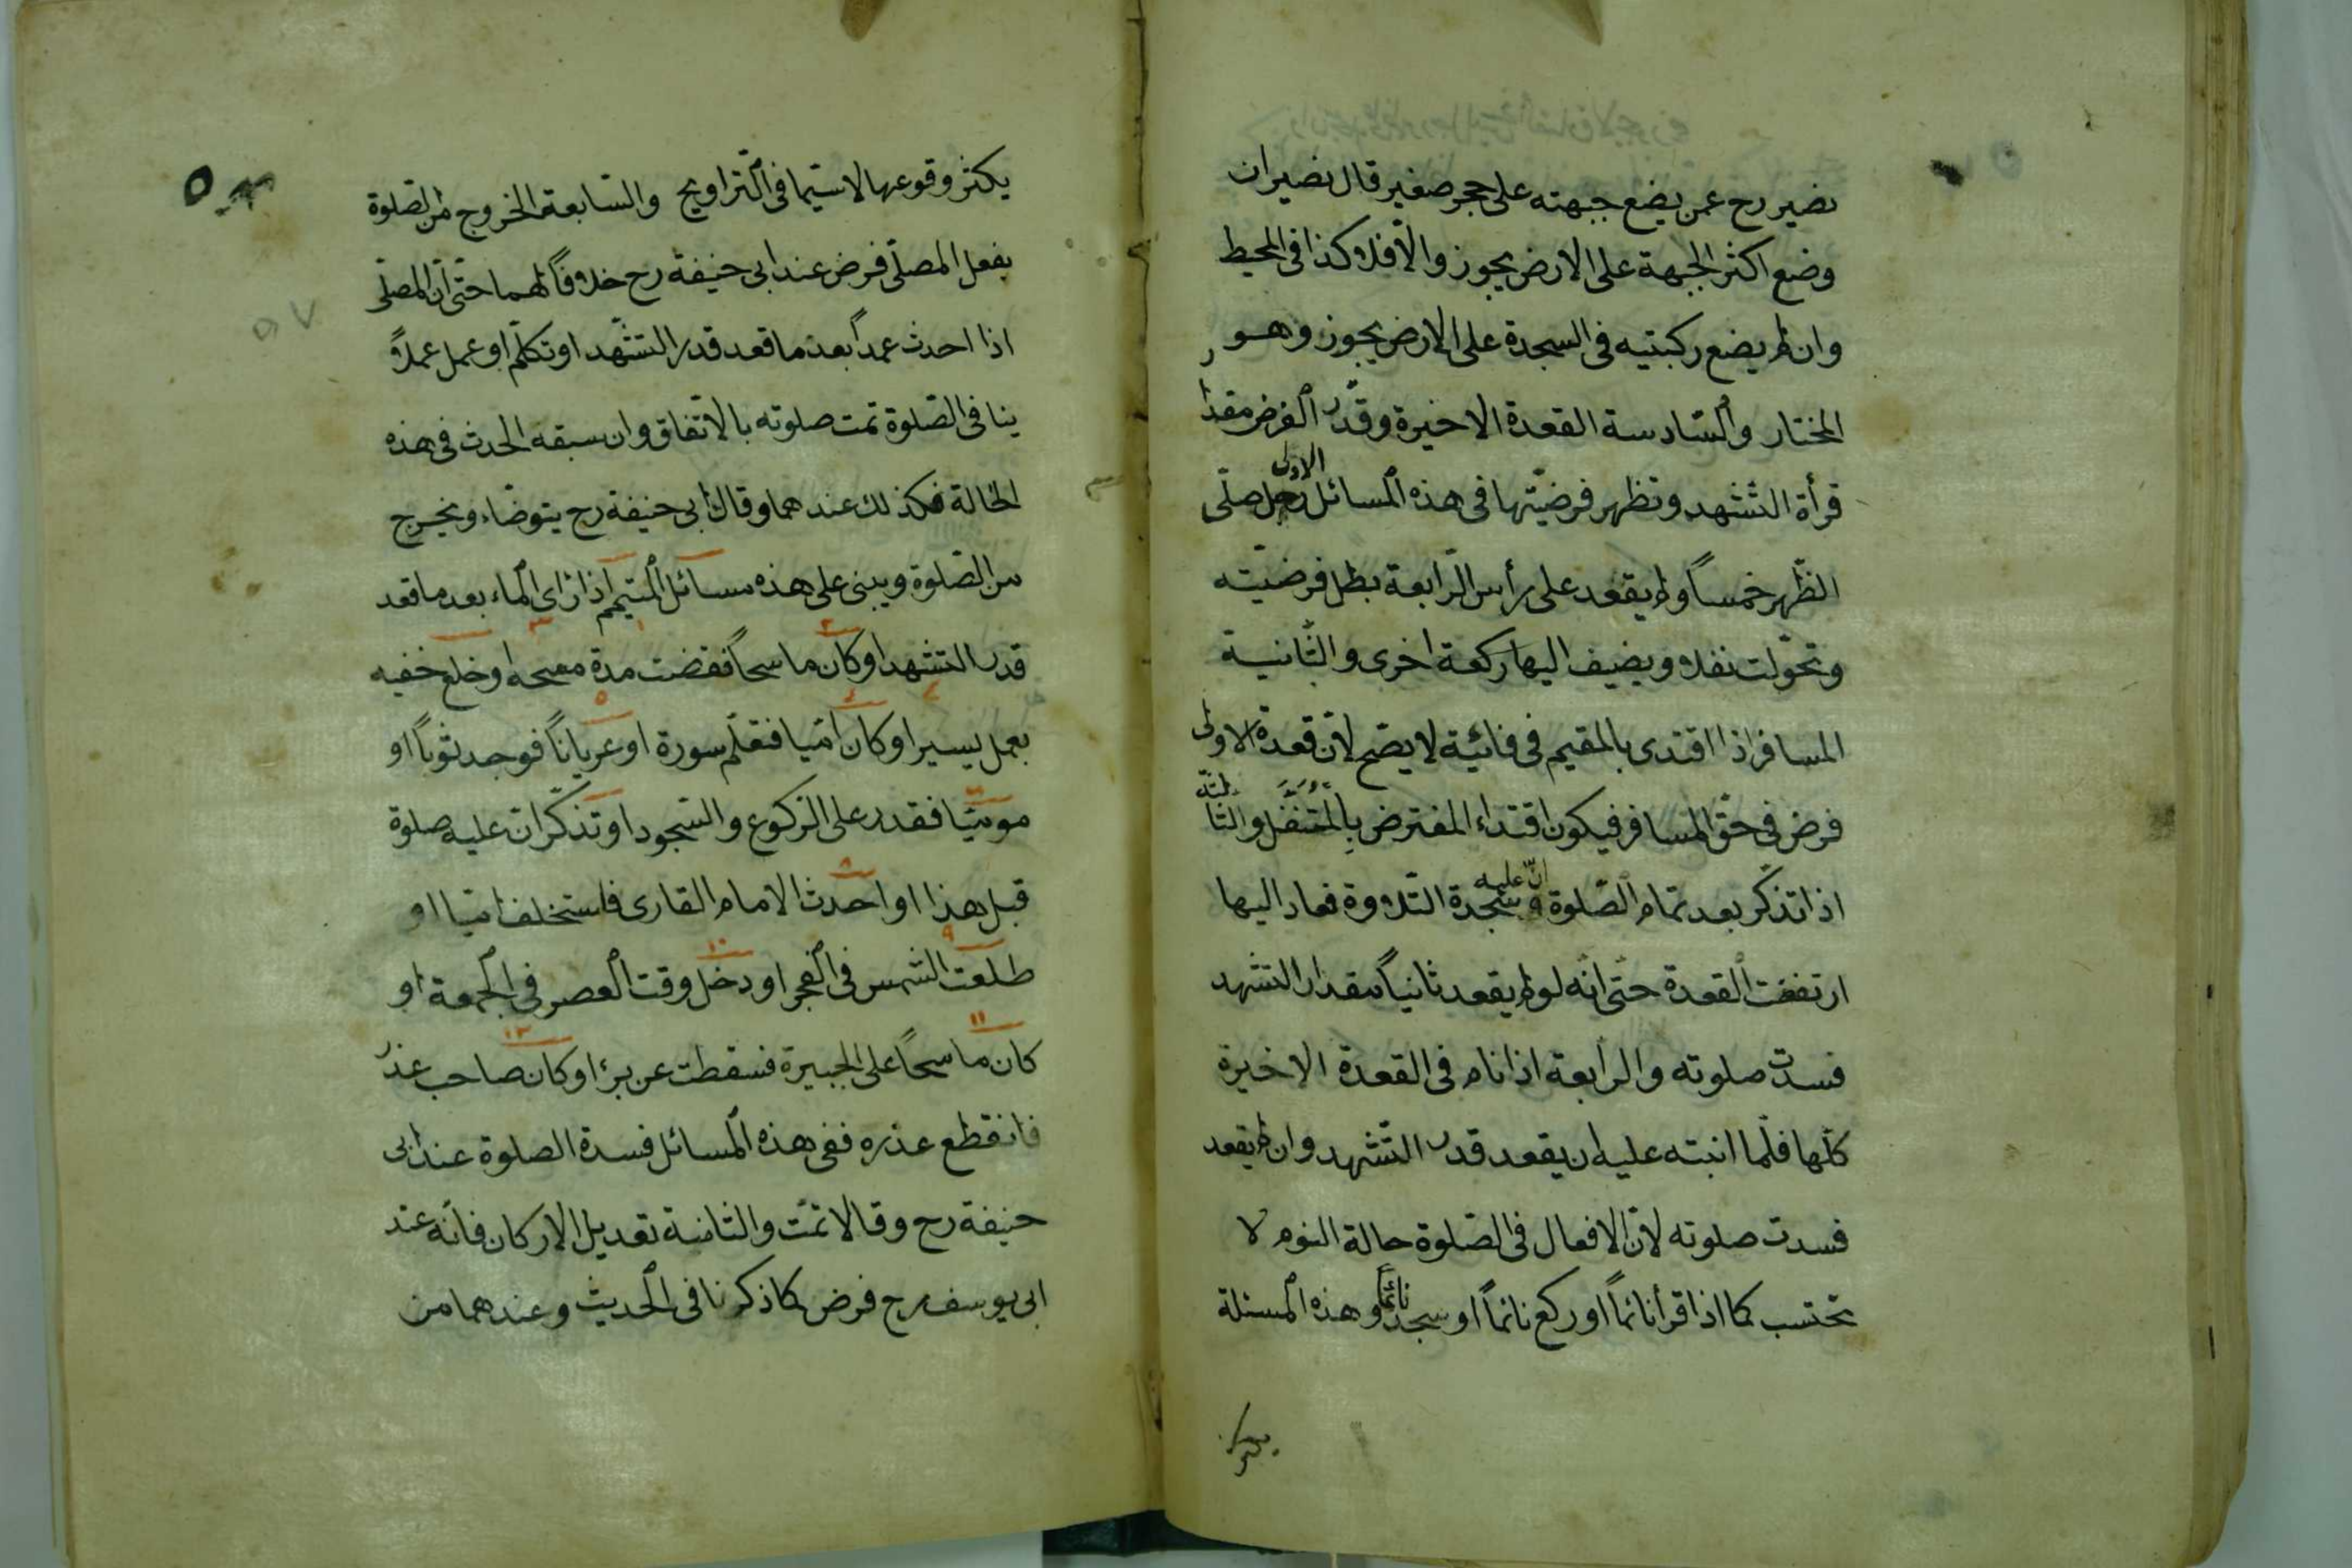 نصير رح عمن يضع جبهته على حجر صغير قال نصير ان
وضع اكثر الجبهة على الارض يجوز والّا فلا كذا فى المحيط
وان لم يضع ركبتيه فى السجدة على الارض يجوز وهو
المختار والسّادسة القعدة الاخيرة وقدّر الفرض مقدار
قرأة التشّهد وتظهر فرضيّتها فى هذه المسائل الاولى رجل صلّى
الظّهر خمساً ولم يقعد على رأس الرّابعة بطل فرضيّته
وتحوّلت نفلا ويضيف اليها ركعة اخرى والثّانية
المسافر اذا اقتدى بالمقيم فى فائتة لا يصحّ لانّ قعدة الاولى
فرض فى حقّ المسافر فيكون اقتداء المفترض بالمتنفل والثالثة
اذا تذكّر بعد تمام الصّلوة انّ عليه سجدة التّلاوة فعاد اليها
ارتفعت القعدة حتّى انّه لو لم يقعد ثانياً مقدار التشهد
فسدت صلوته والرابعة اذا نام فى القعدة الاخيرة
كلّها فلمّا انتبه عليه ان يقعد قدر التّشهد وان لم يقعد
فسدت صلوته لانّ الافعال فى الصّلوة حالة النوم لا
تحتسب كما اذا قرأ نائماً او ركع نائماً او سجد نائما وهذه المسئلة
يكثر
يكثر وقوعها لا سيّما فى التّراويح والسّابعة الخروج من الصّلوة
بفعل المصلّى فرض عند ابى حنيفة رح خلافاً لهما حتّى انّ المصلّى
اذا احدث عمداً بعد ما قعد قدر التشّهد او تكلّم او عمل عملاً
ينافى الصّلوة تمت صلوته بالاتّفاق وان سبقه الحدث فى هذه
الحالة فكذلك عندهما وقال ابى حنيفة رح يتوضّاء ويخرج
من الصّلوة ويبنى على هذه مسائل المتيمّم اذا رأى الماء بعد ما قعد
قدر التشهد او كان ماسحاً فقضت مدة مسحه او خلع خفيه
بعمل يسير او كان امّيا فتعلّم سورة او عرياناً فوجد ثوباً او
مومئيا فقدر على الركوع والسّجود او تذكّر ان عليه صلوة
قبل هذا او احدث الامام القارى فاستخلف امّيا او
طلعت الشمس فى الفجر او دخل وقت العصر فى الجمعة او
كان ماسحاً على الجبيرة فسقطت عن برء او كان صاحب عذر
فانقطع عذره ففى هذه المسائل فسدة الصلوة عند ابى
حنيفة رح وقالا تمّت والثامنة تعديل الاركان فانّه عند
ابى يوسف رح فرض كما ذكرنا فى الحديث وعندهما من